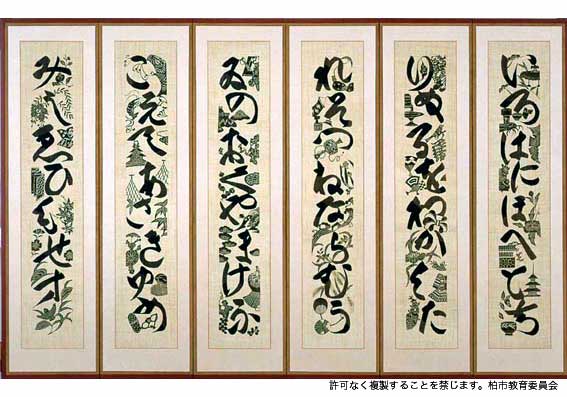 いろはにほへとち
りぬるをわかよた
れそつねならむう
ゐのおくやまけふ
こえてあさきゆめ
みしゑひもせす
許可なく複製することを禁じます。柏市教育委員会